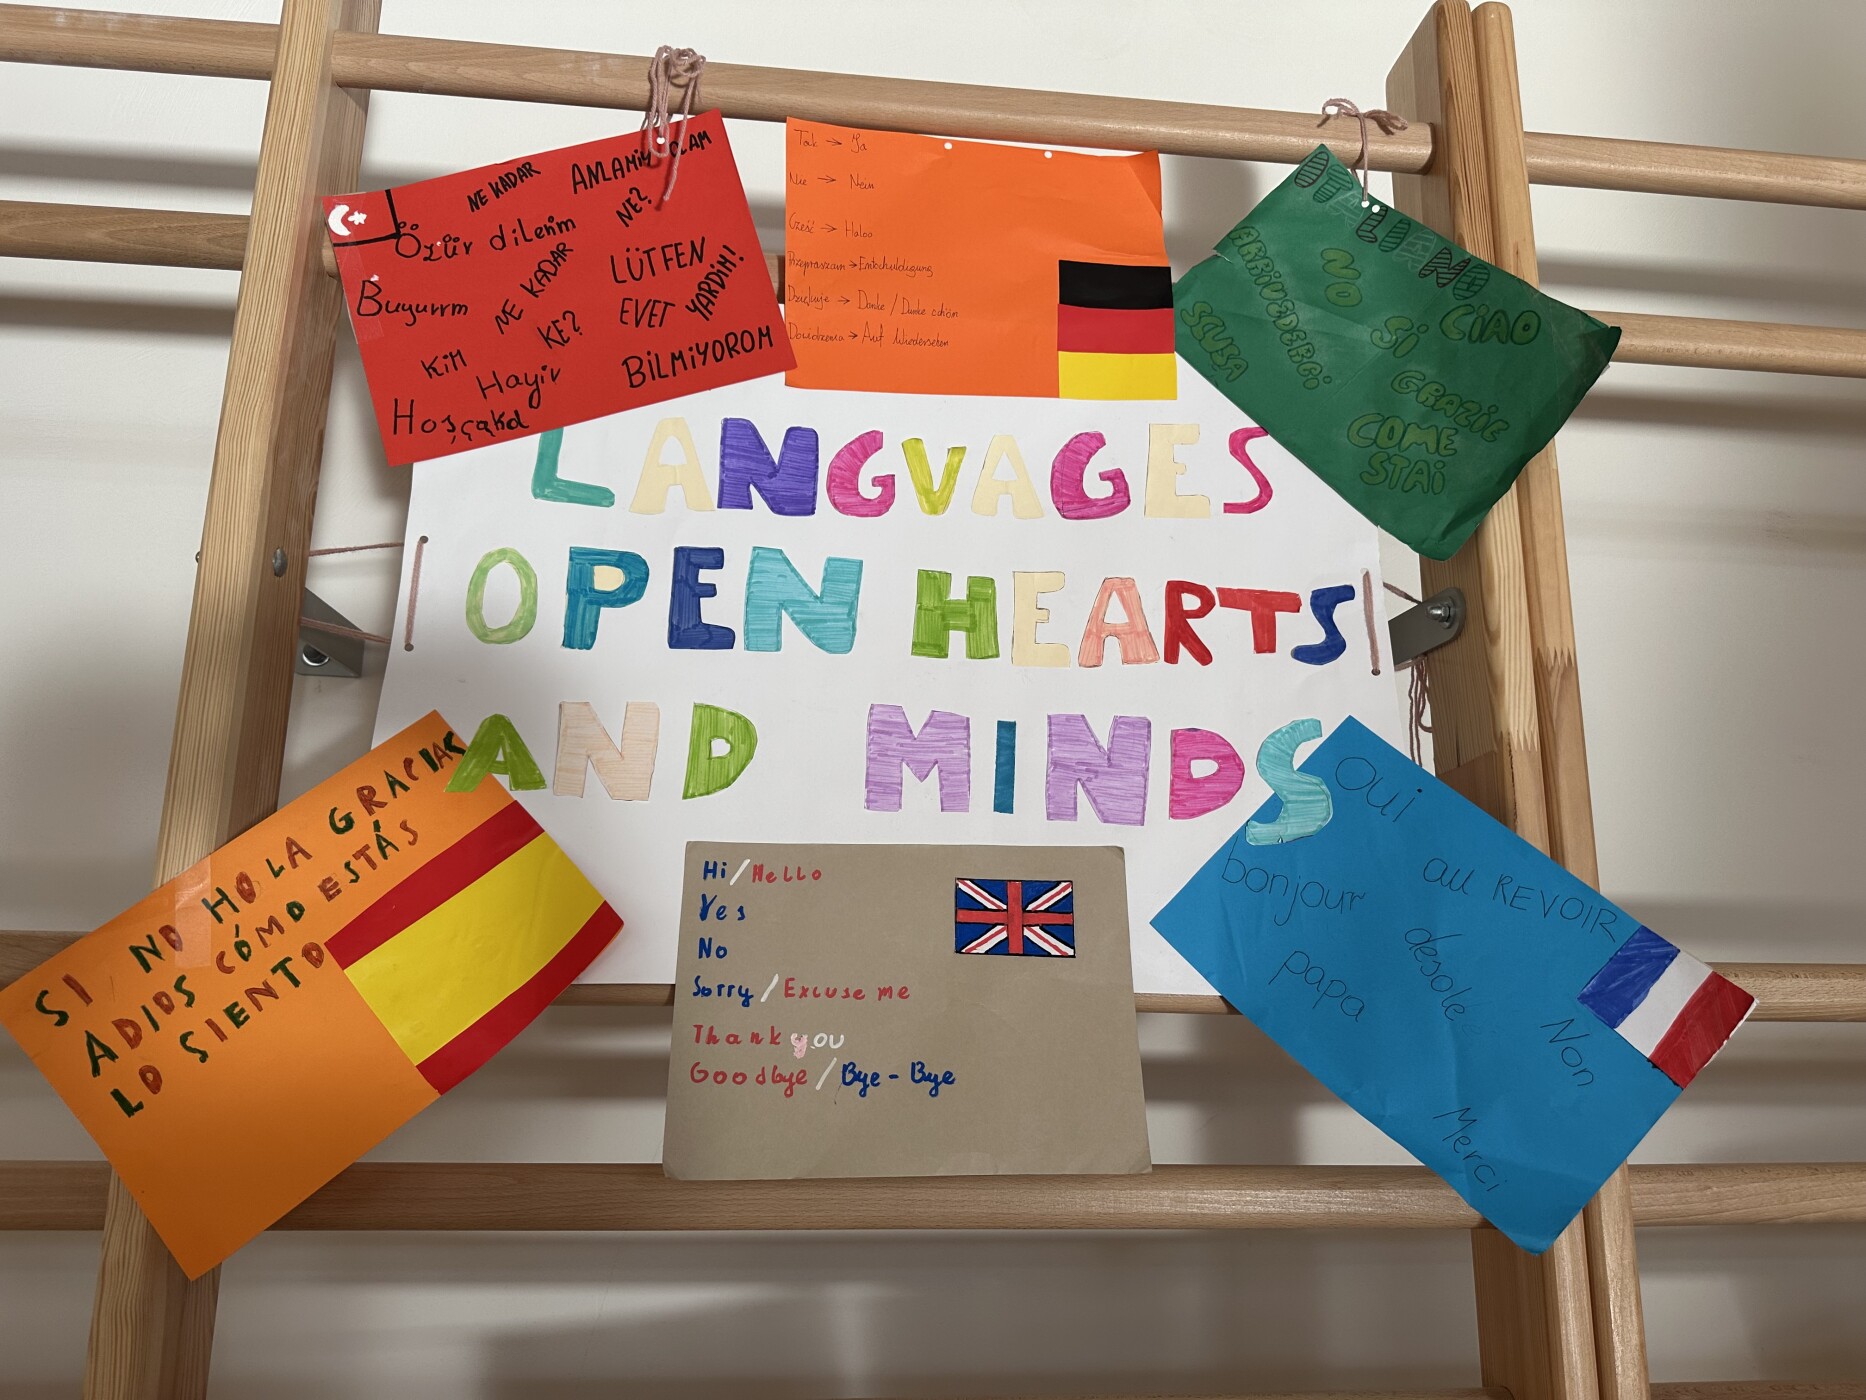 NE KADAR
ANLAMIYOLAM
Özür dilerim
NE?
Buyurrm
NE KADAR
LÜTFEN
YARDIM!
KE?
EVET
Kim
Hayir
BİLMİYOROM
Hoşçakal
Tak → Ja
Nie → Nein
Cześć → Haloo
Przepraszam → Entschuldigung
Dziękuje → Danke / Danke schön
Dowidzenia → Auf Wiedersehen
ITALIANO
ARRIVEDERCI
NO
CIAO
SI
SCUSA
GRAZIE
COME
STAI
LANGUAGES
OPEN HEARTS
AND MINDS
SI NO HOLA GRACIAS
ADIOS CÓMO ESTÁS
LO SIENTO
Hi / Hello
Yes
No
Sorry / Excuse me
Thank you
Goodbye / Bye - Bye
Oui
au REVOIR
bonjour
desolée
papa
Non
Merci